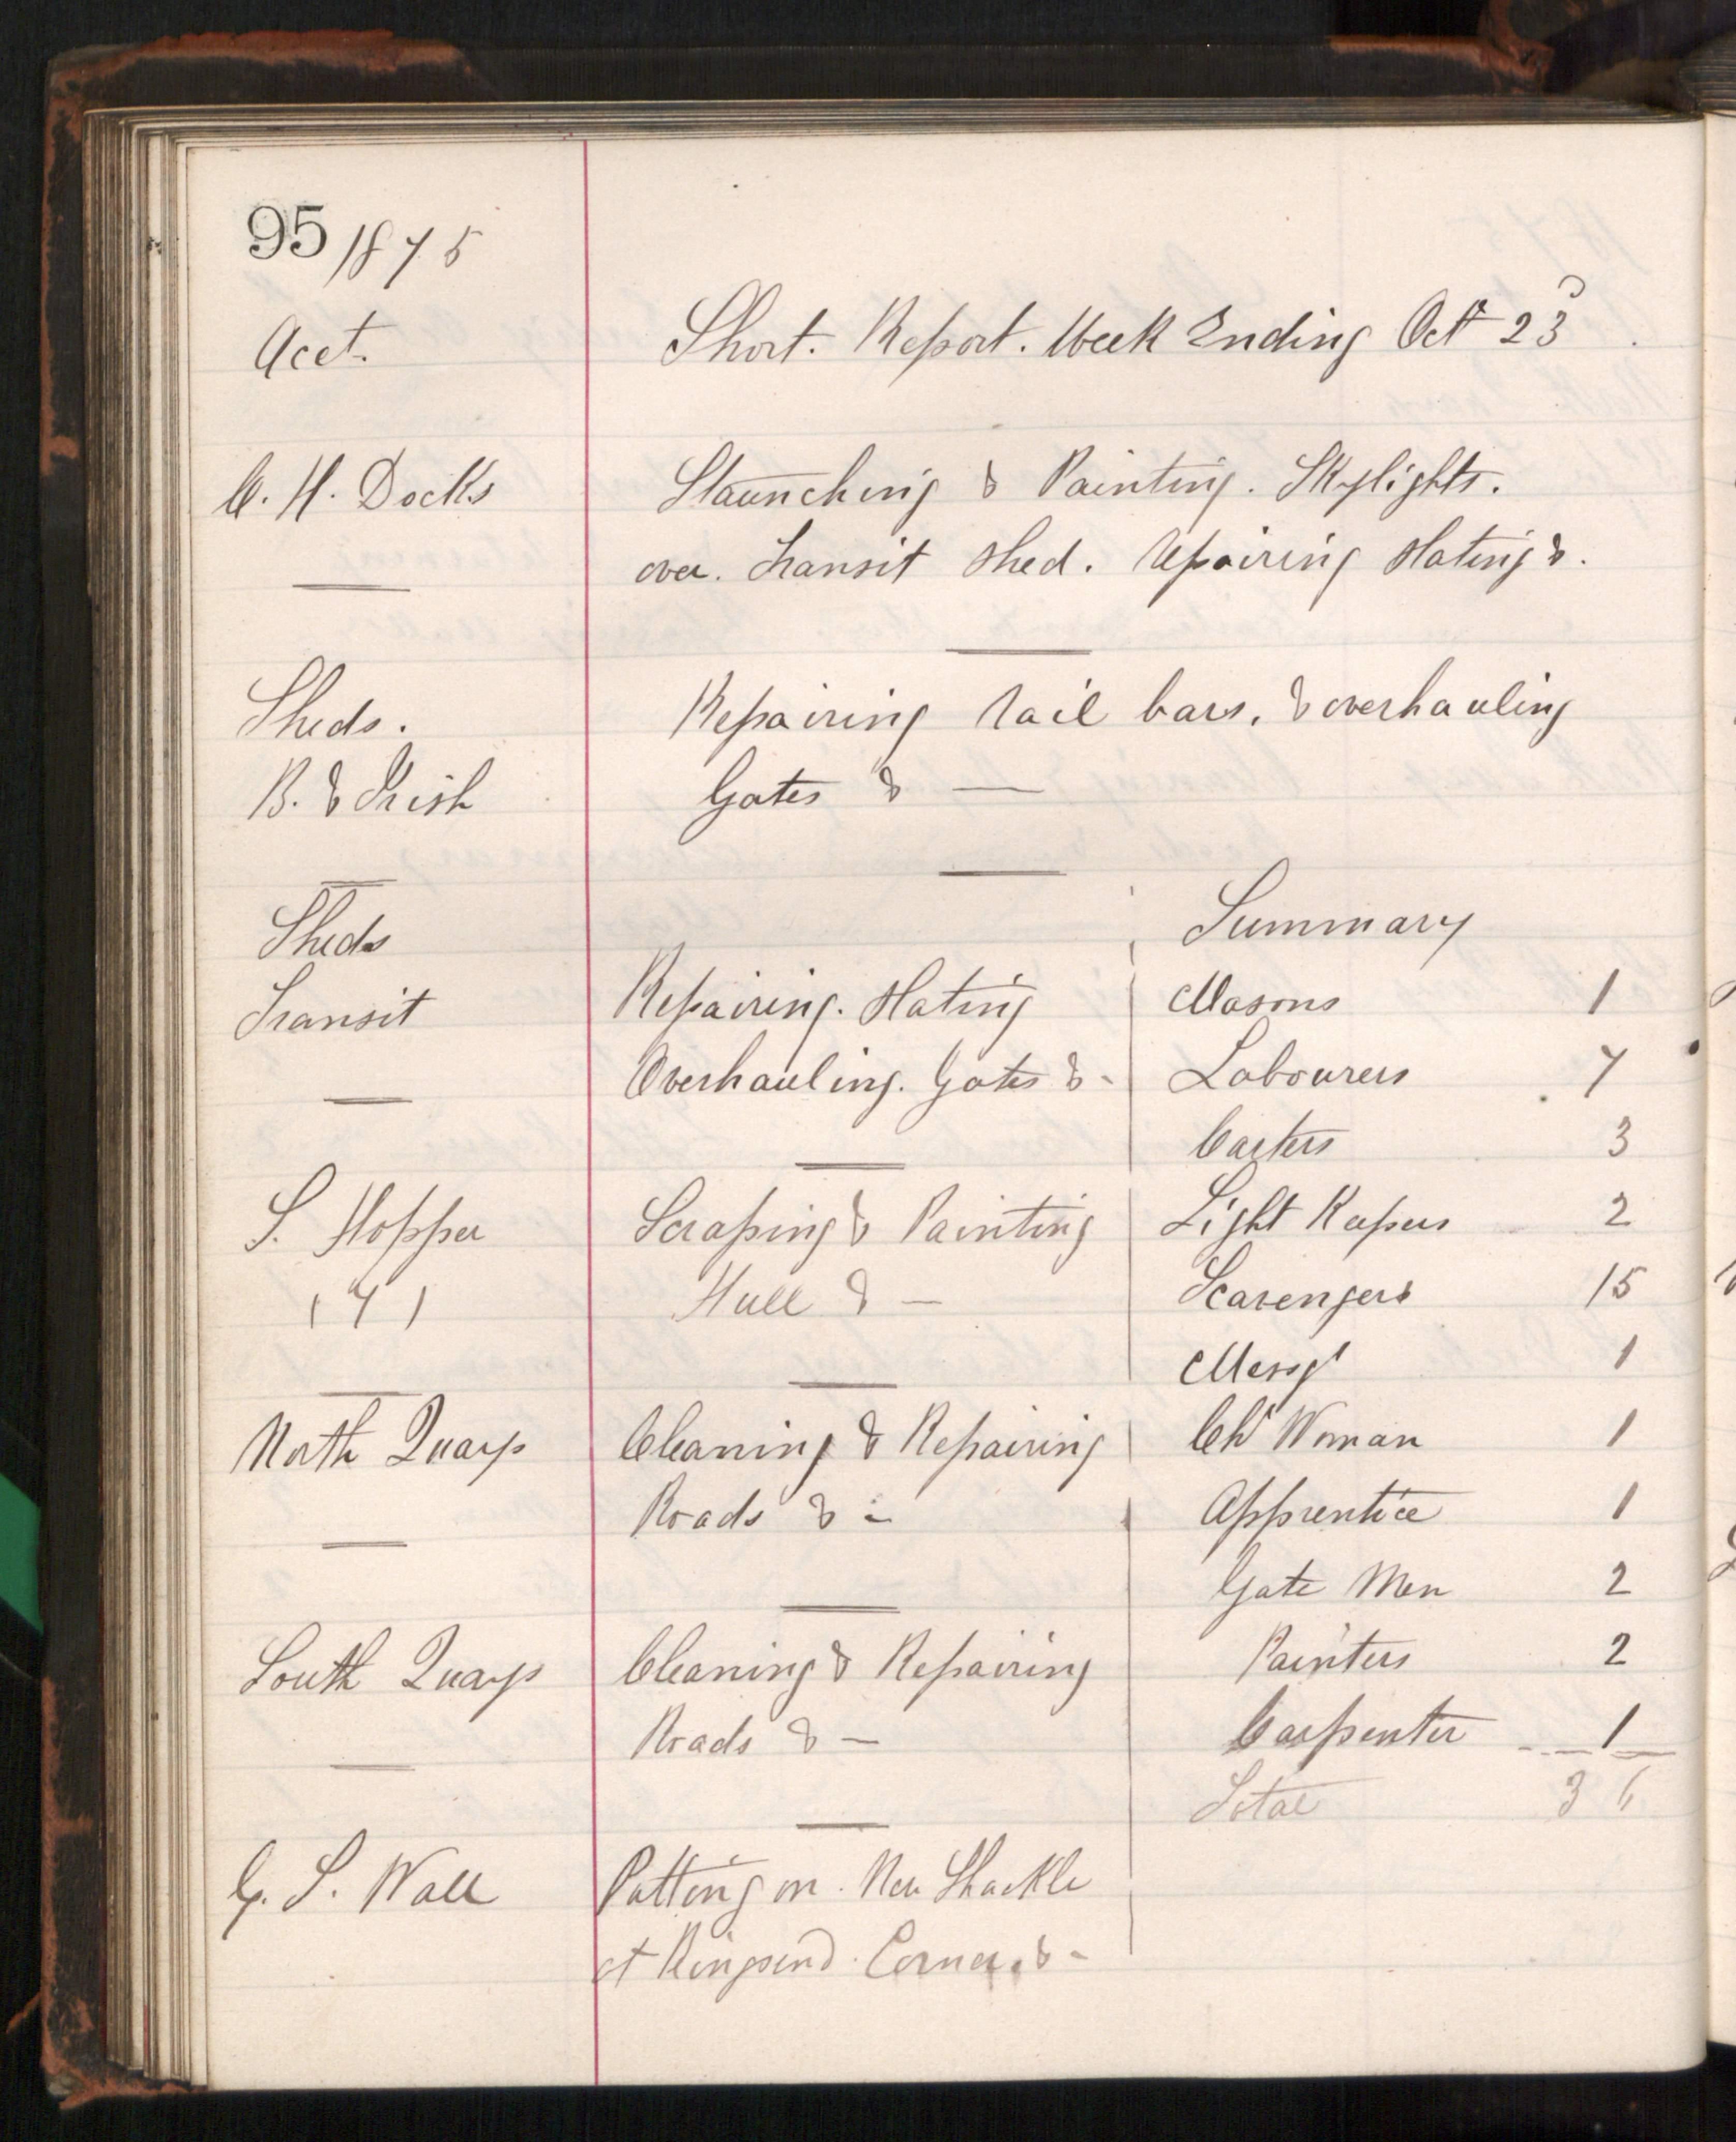 95 1875
Acct. Short. Report. Week Ending Oct 23
C. H. Docks Staunching & Painting. Skylights.
over. Transit Shed. repairing Slating &.
Sheds. Repairing rail bars, & overhauling
B. & Irish Gates & —
Summary
Sheds
Transit Repairing. Slating Masons 1
Overhauling. Gates & - Labourers 7
Carters 3
S. Hopper Scraping & Painting Light Keepers 2
(7) Hull & — Scavengers 15
Messgr 1
North Quays Cleaning & Repairing Chr Woman 1
Roads & - Apprentice 1
Gate Men 2
South Quays Cleaning & Repairing Painters 2
Roads & — Carpenter 1
Total 36
G. S. Wall Putting on. New Shackle
at Ringsend. Corner. & -